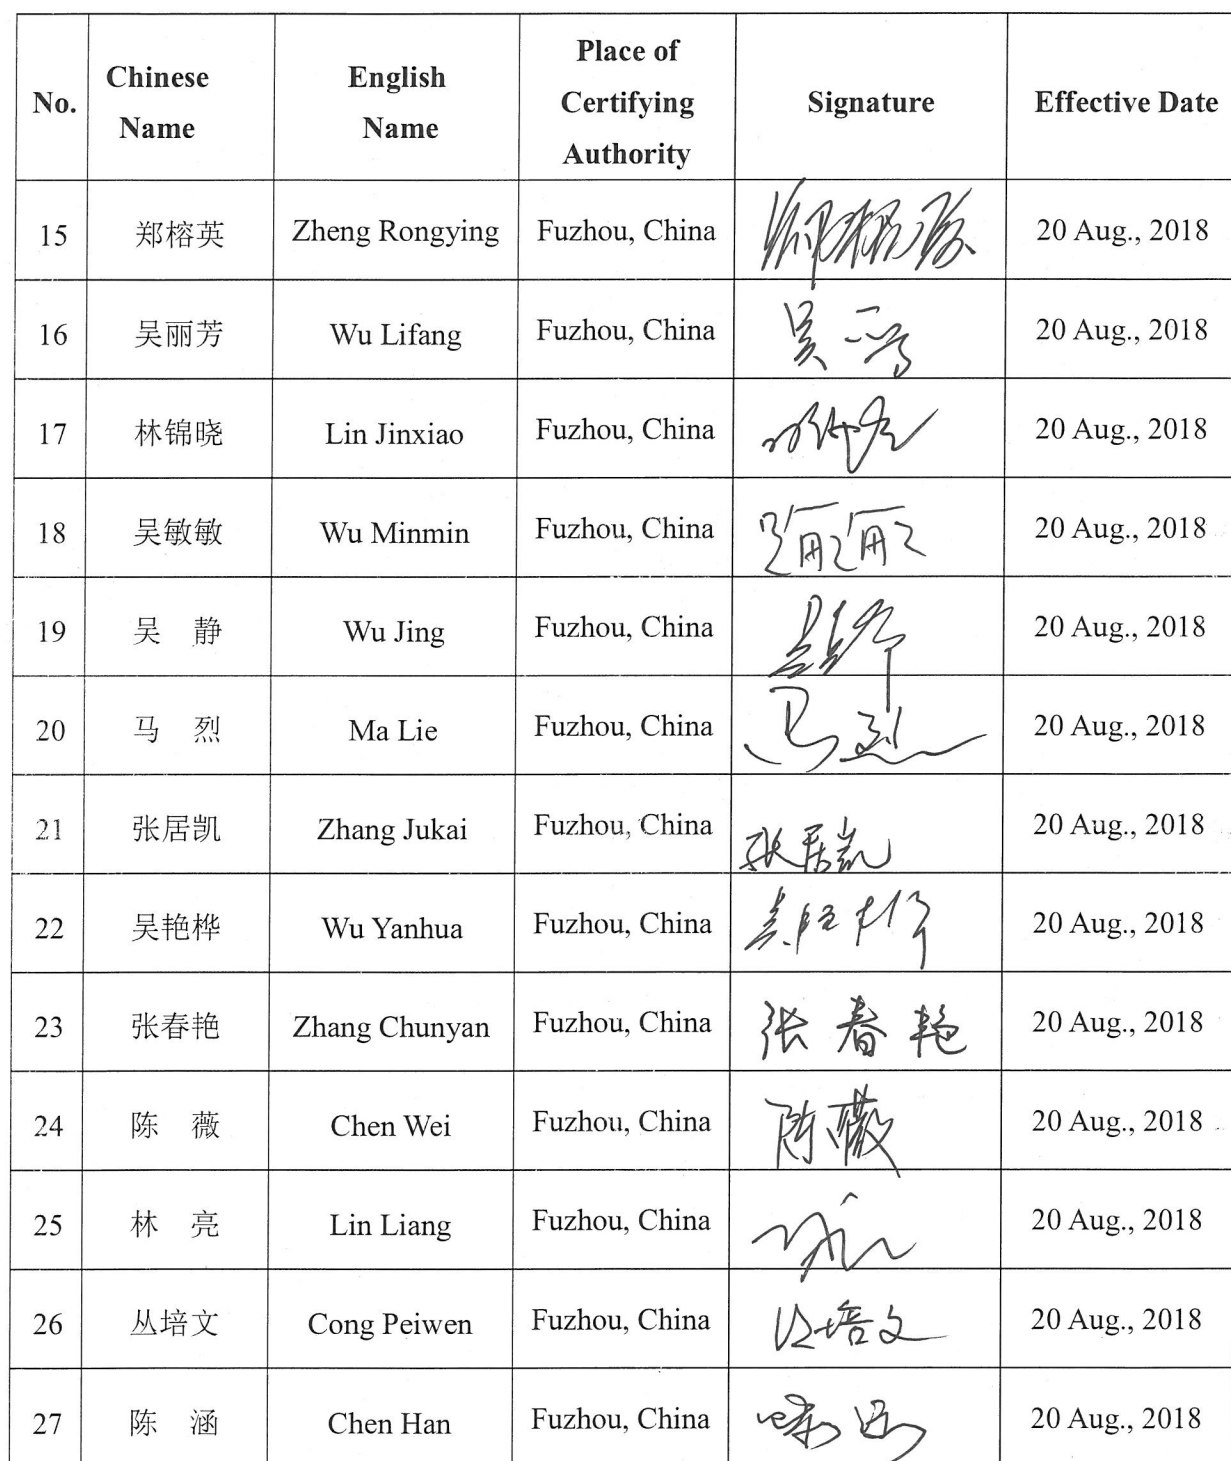 No. Chinese Name English Name Place of Certifying Authority Signature Effective Date
15 郑榕英 Zheng Rongying Fuzhou, China 20 Aug., 2018
16 吴丽芳 Wu Lifang Fuzhou, China 20 Aug., 2018
17 林锦晓 Lin Jinxiao Fuzhou, China 20 Aug., 2018
18 吴敏敏 Wu Minmin Fuzhou, China 20 Aug., 2018
19 吴 静 Wu Jing Fuzhou, China 20 Aug., 2018
20 马 烈 Ma Lie Fuzhou, China 马烈 20 Aug., 2018
21 张居凯 Zhang Jukai Fuzhou, China 张居凯 20 Aug., 2018
22 吴艳桦 Wu Yanhua Fuzhou, China 20 Aug., 2018
23 张春艳 Zhang Chunyan Fuzhou, China 张春艳 20 Aug., 2018
24 陈 薇 Chen Wei Fuzhou, China 陈薇 20 Aug., 2018
25 林 亮 Lin Liang Fuzhou, China 20 Aug., 2018
26 丛培文 Cong Peiwen Fuzhou, China 丛培文 20 Aug., 2018
27 陈 涵 Chen Han Fuzhou, China 20 Aug., 2018